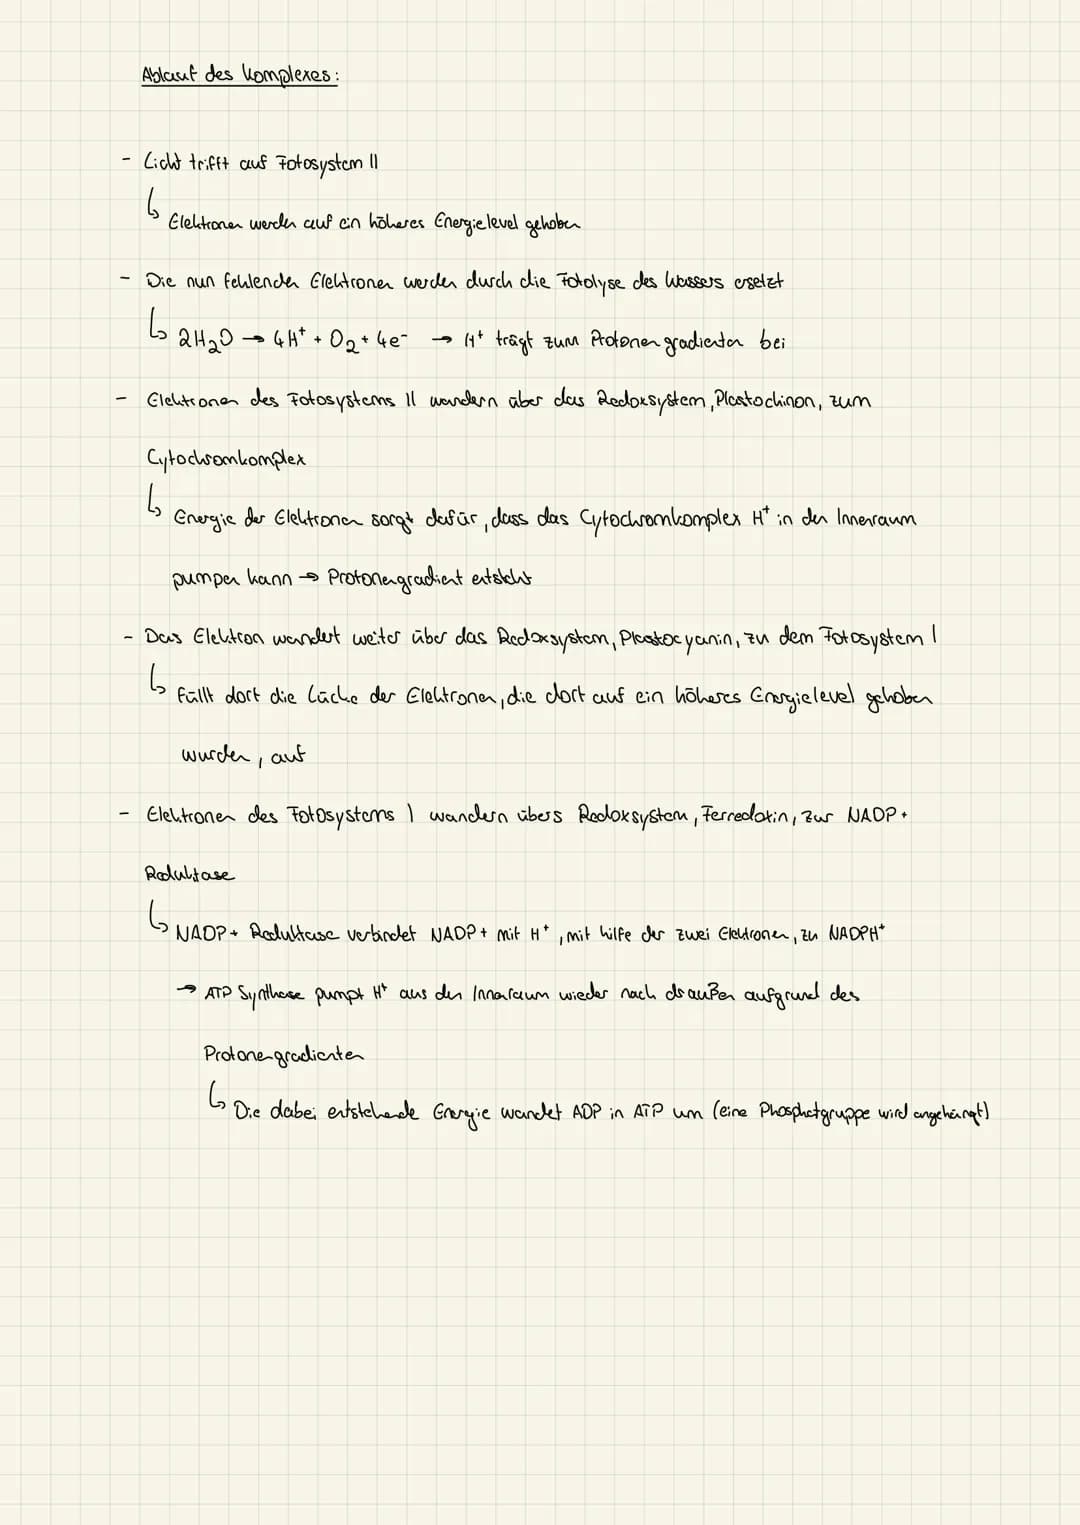 Ablauf des Komplexes:
- Licht trifft auf Fotosystem II
↳ Elektronen werden auf ein höheres Energielevel gehoben
- Die nun fehlenden Elektronen werden durch die Fotolyse des Wassers ersetzt
↳ 2H₂O → 4H⁺ + O₂ + 4e⁻ → H⁺ trägt zum Protonengradienten bei
- Elektronen des Fotosystems II wandern über das Redoxsystem, Plastochinon, zum
Cytochromkomplex
↳ Energie der Elektronen sorgt dafür, dass das Cytochromkomplex H⁺ in den Innenraum
pumpen kann → Protonengradient entsteht
- Das Elektron wandert weiter über das Redoxsystem, Plastocyanin, zu dem Fotosystem I
↳ Füllt dort die Lücke der Elektronen, die dort auf ein höheres Energielevel gehoben
wurden, auf
- Elektronen des Fotosystems I wandern übers Redoxsystem, Ferredoxin, zur NADP+
Reduktase
↳ NADP+ Reduktase verbindet NADP+ mit H⁺, mit hilfe der zwei Elektronen, zu NADPH⁺
→ ATP Synthase pumpt H⁺ aus den Innenraum wieder nach draußen aufgrund des
Protonengradienten
↳ Die dabei entstehende Energie wandet ADP in ATP um (eine Phosphatgruppe wird angehängt)